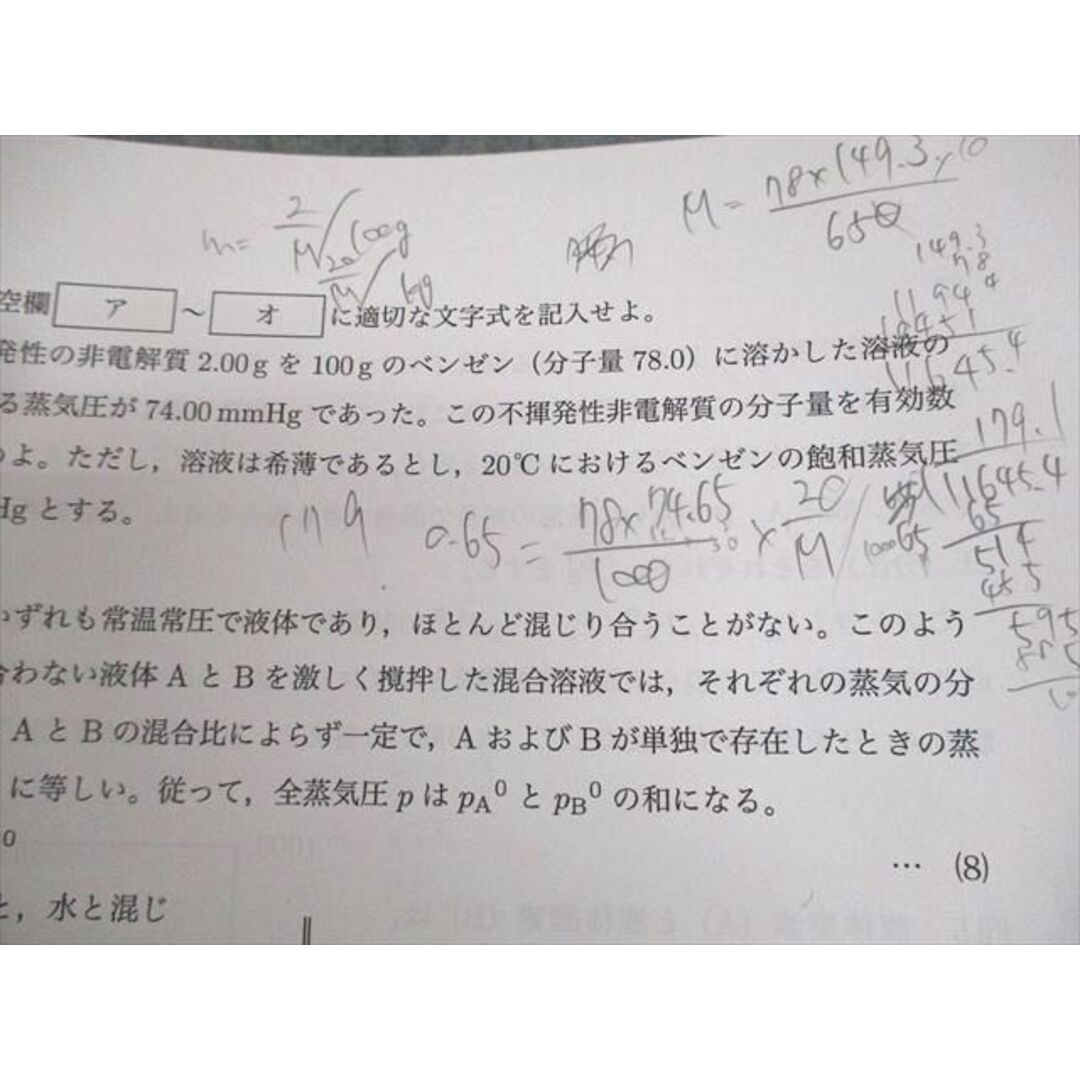 M = 78×149.3×10 / 650
m = 2/M / 100g
20/M / kg
149.3
78
空欄 ア ～ オ に適切な文字式を記入せよ。
11944
10451
発性の非電解質 2.00 g を 100 g のベンゼン（分子量 78.0）に溶かした溶液の
11645.4
る蒸気圧が 74.00 mmHg であった。この不揮発性非電解質の分子量を有効数
179.1
よ。ただし，溶液は希薄であるとし，20℃におけるベンゼンの飽和蒸気圧
11645.4
Hg とする。
179
0.65 = 78×74.65 / 1000 × 20/M
65
65
514
455
595
いずれも常温常圧で液体であり，ほとんど混じり合うことがない。このよう
合わない液体 A と B を激しく撹拌した混合溶液では，それぞれの蒸気の分
A と B の混合比によらず一定で，A および B が単独で存在したときの蒸
に等しい。従って，全蒸気圧 p は pA⁰ と pB⁰ の和になる。
0
… (8)
と，水と混じ